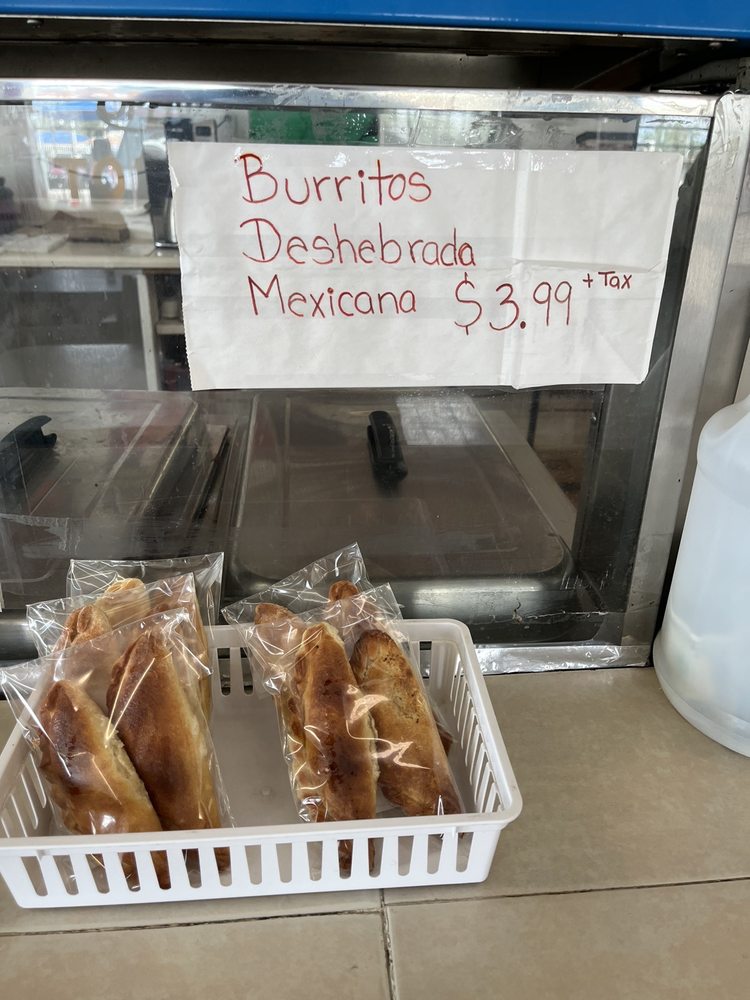 Burritos
Deshebrada
Mexicana $3.99 + Tax